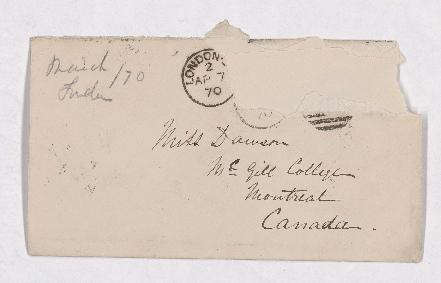 March/70
London
LONDON
2
AP 7
70
Miss Dawson
Mc Gill College
Montreal
Canada.